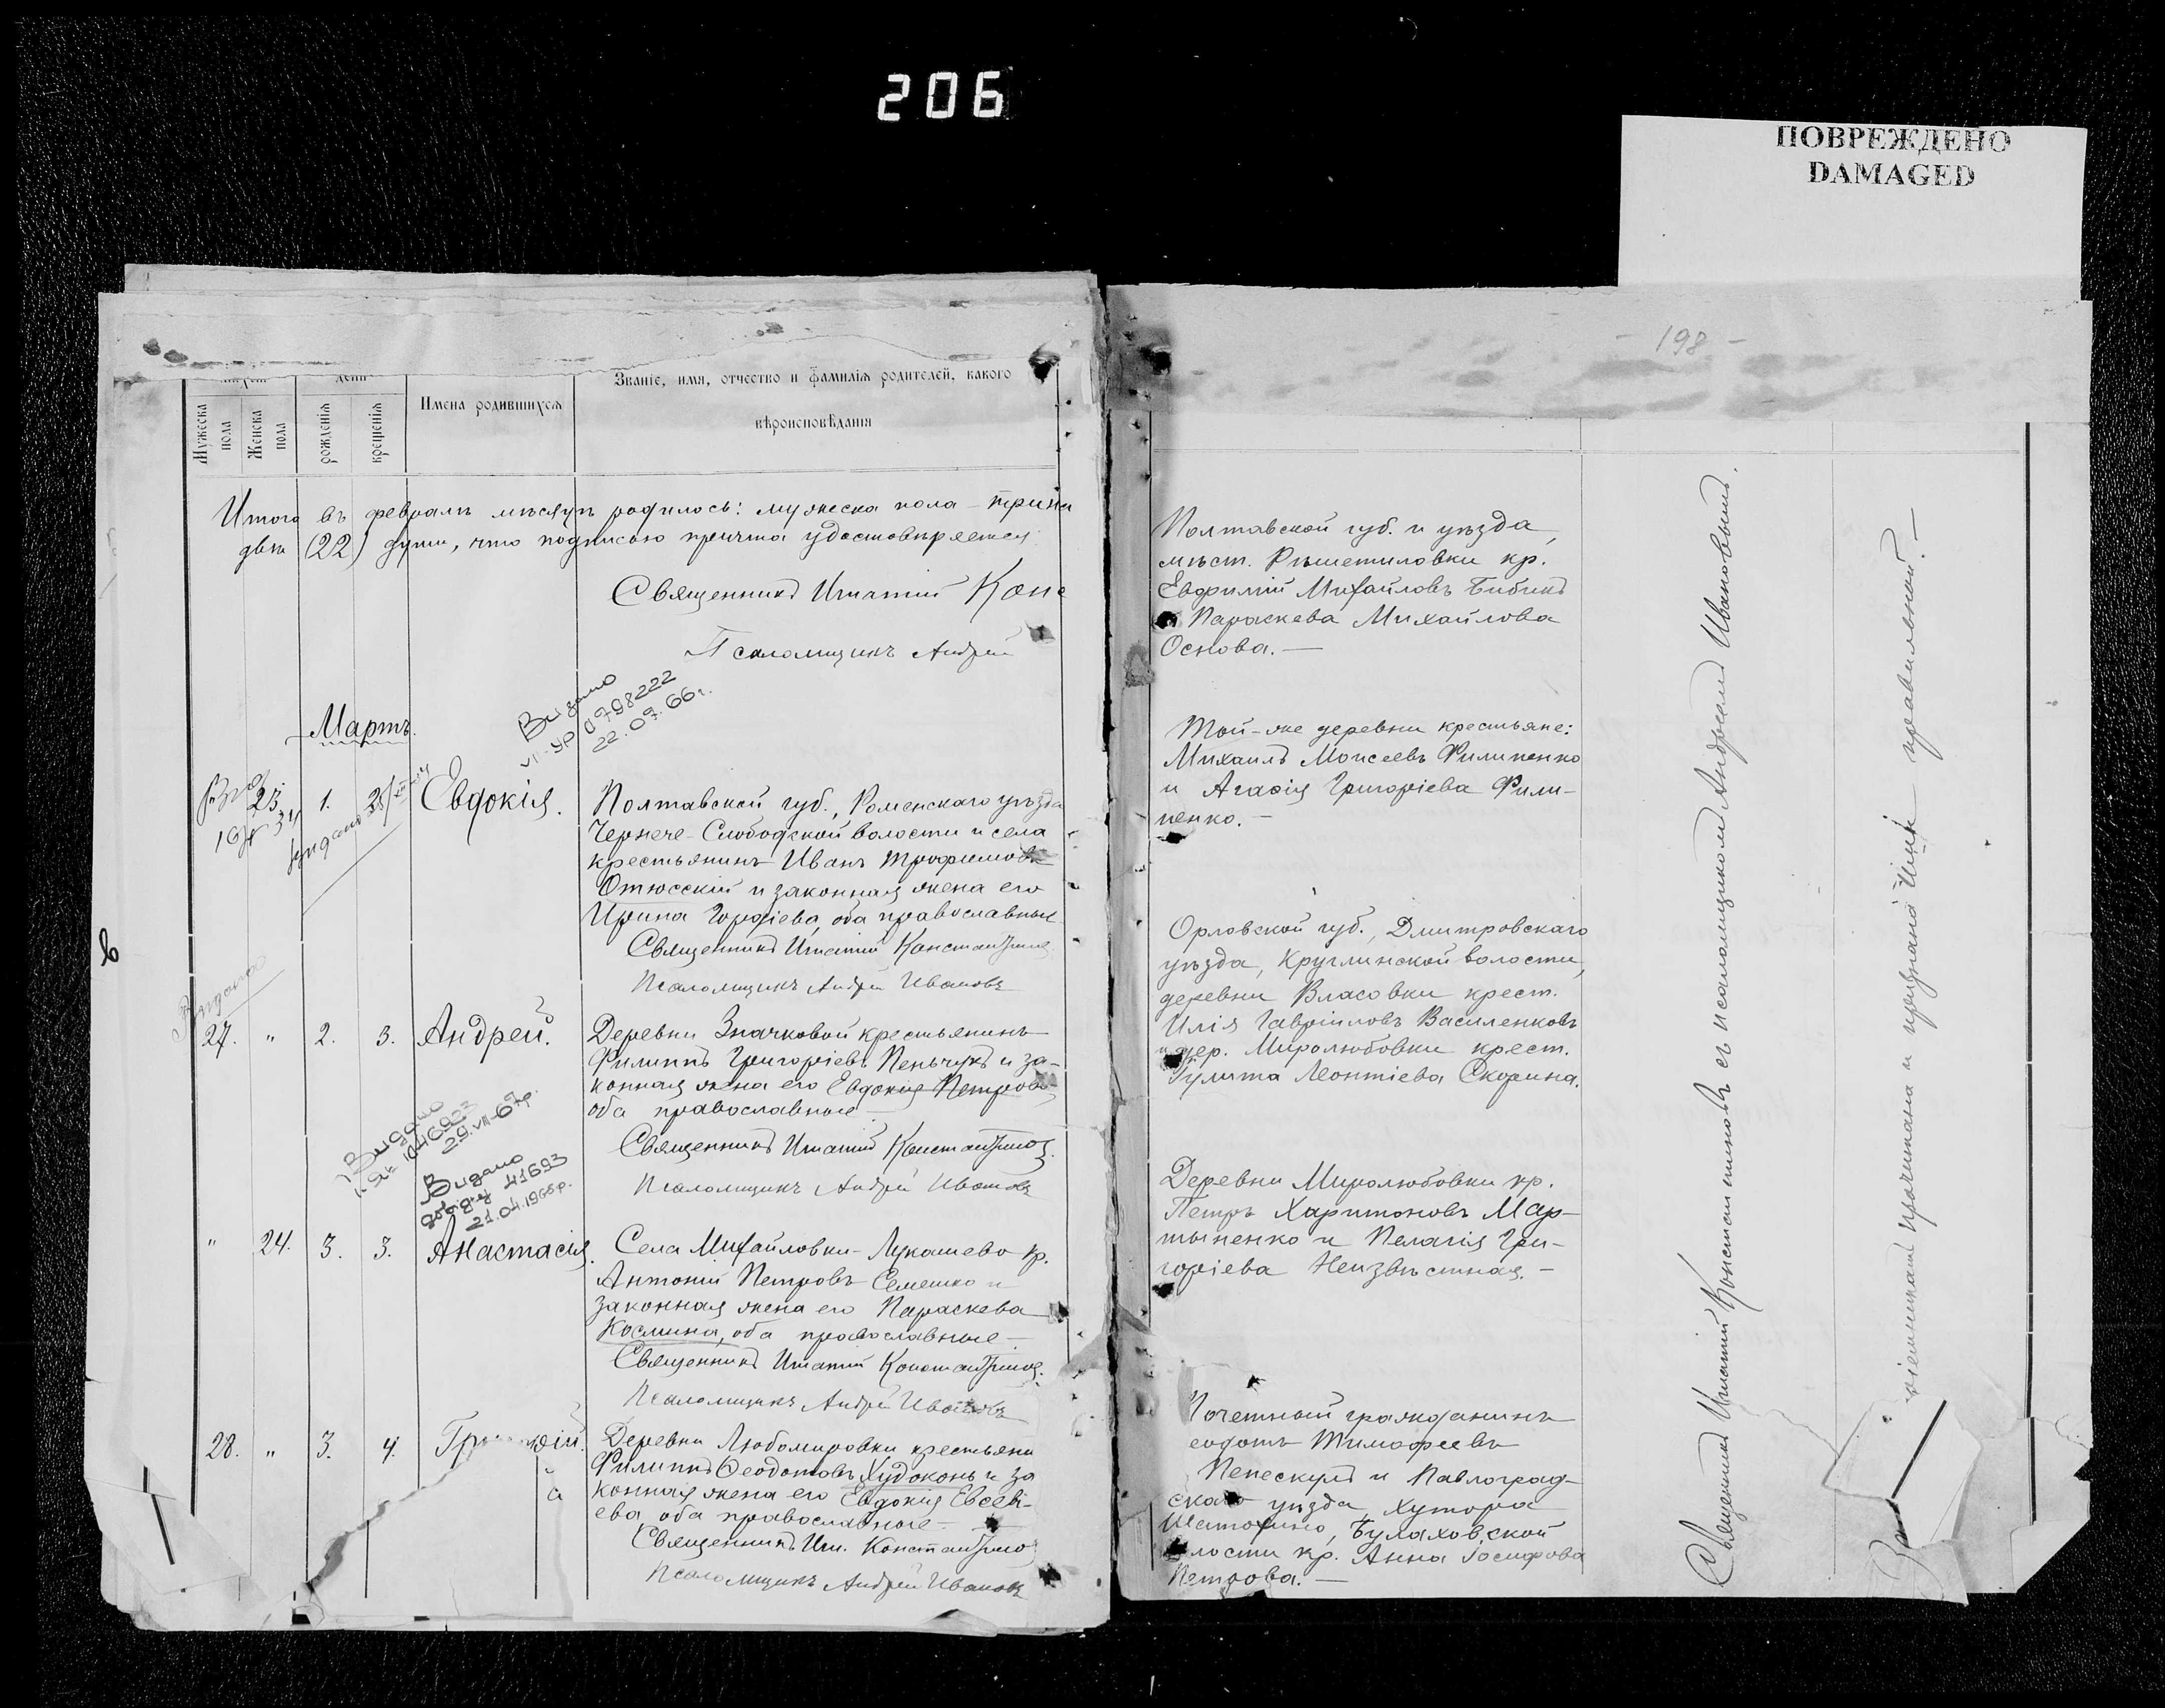 206
ПОВРЕЖДЕНО
DAMAGED
- 198 -
Мужеска пола
Женска пола
рожденія
крещенія
Имена родившихся
Званіе, имя, отчество и фамилія родителей, какого
вѣроисповѣданія
Итого въ февралѣ мѣсяцѣ родилось: мужеска пола - трина
два (22) души, что подписью причта удостовѣряется
Священникъ Игнатій Конс
Псаломщикъ Андрей
Видано
0798222
22.07.66г.
Мартъ.
23.
1.
Евдокія.
Полтавской губ., Роменскаго уѣзда
Чернече-Слободской волости и села
крестьянинъ Иванъ Трофимовъ
Отюсскій и законная жена его
Ирина Гордіева, оба православные
Священникъ Игнатій Константинов
Псаломщикъ Андрей Ивановъ
Видано
27. " 2. 3. Андрей.
Деревни Значковой крестьянинъ
Филиппъ Григоріевъ Пеньчукъ и за-
конная жена его Евдокія Петрова
оба православные -
Священникъ Игнатій Константинов.
Псаломщикъ Андрей Ивановъ
Видано
29.VII-67р.
Видано
довідку 41693
21.04.1966р.
" 24. 3. 3. Анастасія.
Села Михайловки-Лукашево кр.
Антоній Петровъ Семешко и
законная жена его Параскева
Космина, оба православные -
Священникъ Игнатій Константинов.
Псаломщикъ Андрей Ивановъ
28. " 3. 4.
Деревни Любомировки крестьяни
Филиппъ Ѳеодотовъ Худоконь и за
конная жена его Евдокія Евсеві-
ева, оба православные -
Священникъ Игн. Константинов
Псаломщикъ Андрей Ивановъ
Полтавской губ. и уѣзда,
мѣст. Рѣшетиловки кр.
Евфимій Михайловъ Бибикъ
и Параскева Михайлова
Основа. -
Той-же деревни крестьяне:
Михаилъ Моисеевъ Филипенко
и Агафія Григоріева Фили-
пенко. -
Орловской губ., Дмитровскаго
уѣзда, Круглинской волости,
деревни Власовки крест.
Илія Гавріиловъ Василенковъ
и дер. Миролюбовки крест.
Гулита Леонтіева Скорина.
Деревни Миролюбовки кр.
Петръ Харитоновъ Мар-
тыненко и Пелагія Гри-
горіева Неизвѣстная. -
Почетный гражданинъ
еодотъ Тимофеевъ
Пепескулъ и Павлоград-
скаго уѣзда, хутора
Шатохино, Булаховской
лости кр. Анна Іосифова
Петрова. -
Священникъ Игнатій Константиновъ съ псаломщикомъ Андреемъ Ивановымъ.
прочитана и признана правильной. -